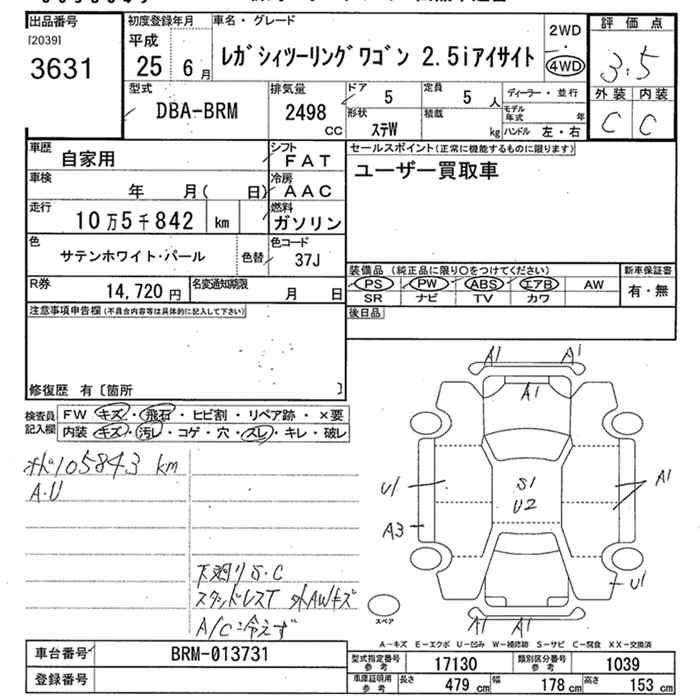 出品番号
[2039]
3631
初度登録年月
平成
25 6月
車名・グレード
レガシィツーリングワゴン 2.5iアイサイト
2WD
・
4WD
評価点
3.5
外装 内装
C C
型式
DBA-BRM
排気量
2498
CC
ドア
5
定員
5 人
形状
ステW
積載
kg
ディーラー・並行
モデル年式 年
ハンドル 左・右
車歴
自家用
シフト
FAT
車検
年 月( 日)
冷房
AAC
走行
10万5千842 km
燃料
ガソリン
色
サテンホワイト・パール
色替
色コード
37J
R券
14,720 円
名変通知期限
月 日
セールスポイント(正常に機能するものに限ります)
ユーザー買取車
装備品 (純正品に限り○をつけてください)
PS PW ABS エアB AW
SR ナビ TV カワ
新車保証書
有・無
後日品
注意事項申告欄(不具合内容等は具体的に記入して下さい)
修復歴 有〔箇所 〕
検査員
記入欄
FW キズ・飛石・ヒビ割・リペア跡・×要
内装 キズ・汚レ・コゲ・穴・スレ・キレ・破レ
オド105843 km
A・U
下廻りS・C
スタッドレスT 外AWキズ
A/C冷えず
A1 A1
A1
U1
S1
U2
A1
A3
U1
A1 A1
スペア
A-キズ E-エクボ U-凹み W-補修跡 S-サビ C-腐食 XX-交換済
車台番号
BRM-013731
登録番号
型式指定番号
参考
17130
類別区分番号
参考
1039
車庫証明用
参考
長さ 479 cm
幅 178 cm
高さ 153 cm